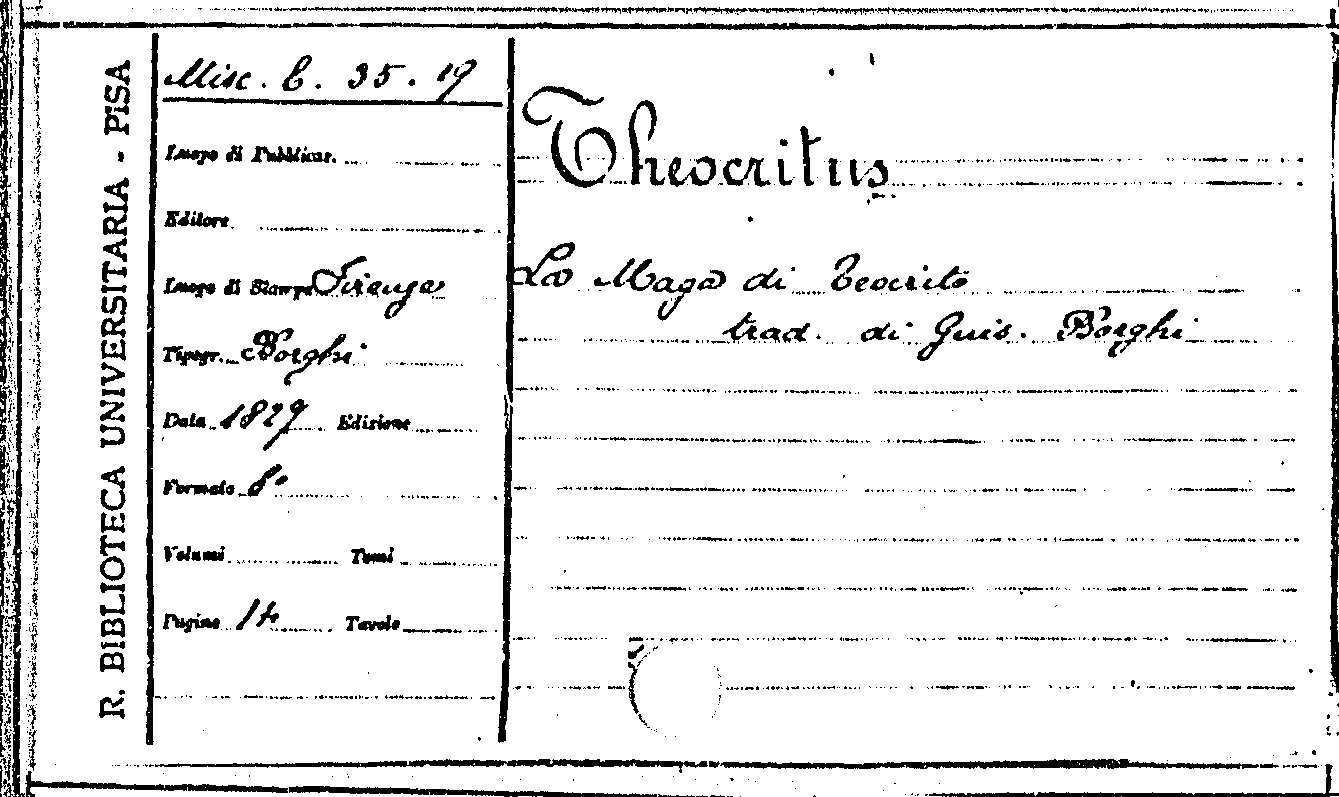 R. BIBLIOTECA UNIVERSITARIA - PISA
Misc. C. 35. 19
Luogo di Pubblicaz.
Editore
Luogo di Stampa Firenze
Tipogr. Borghi
Data 1829 Edizione
Formato 8°
Volumi Tomi
Pagine 14 Tavole
Theocritus
La Maga di Teocrito
trad. di Guis. Borghi